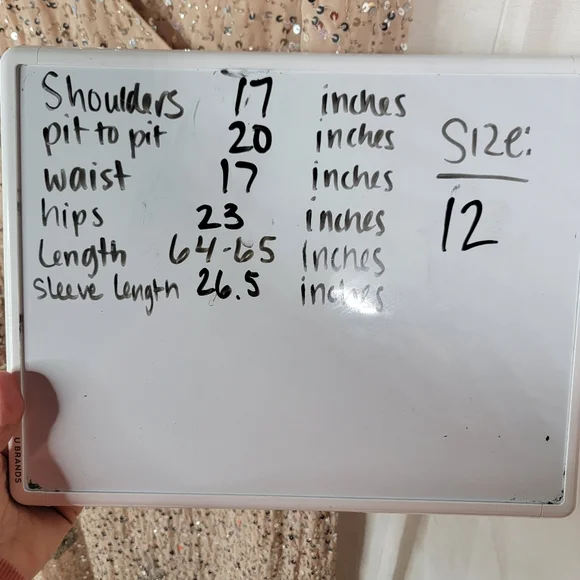 Shoulders 17 inches
pit to pit 20 inches
waist 17 inches
hips 23 inches
Length 64-65 Inches
Sleeve Length 26.5 inches
Size:
12
U BRANDS